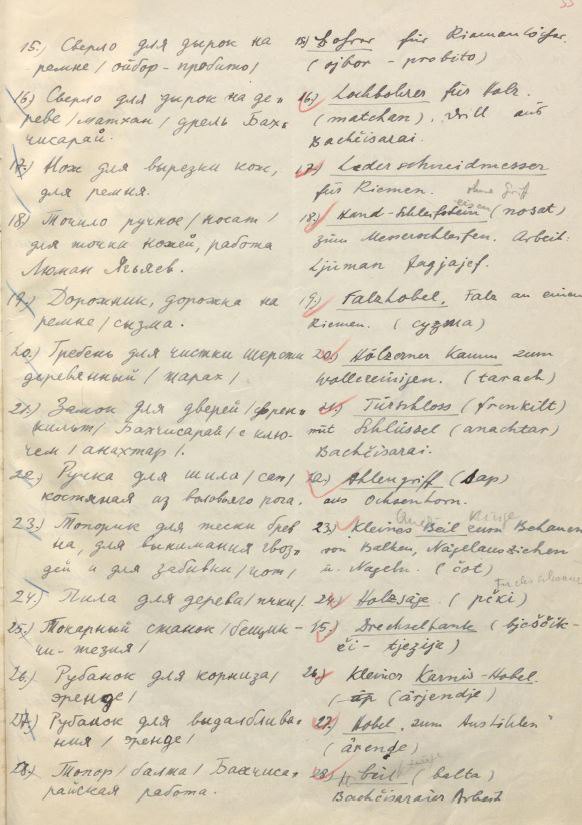 15.) Сверло для дырок на
ремне / ойбор - пробито /
16.) Сверло для дырок на де-
реве / матхан / дрель Бах-
чисарай.
17.) Нож для вырезки кож,
для ремня.
18) Точило ручное / носат /
для точки ножей, работа
Люман Ягьяев.
19.) Дорожник, дорожка на
ремне / сызма.
20.) Гребень для чистки шерсти
деревянный / тарах /
21.) Замок для дверей / френ-
кильт / Бахчисарай / с клю-
чем / анахтар /.
22.) Ручка для шила / сап /
костяная из воловьего рога.
23.) Топорик для тески брев
на, для вынимания гвоз-
дей и для забивки / чот /
24.) Пила для дерева / пчки /.
25.) Токарный станок / бещик-
чи-тезия /
26.) Рубанок для корниза /
эренде /
27.) Рубанок для выдалблива-
ния / эренде /
28.) Топор / балта / Бахчиса-
райская работа.
15.) Bohrer für Riemenlöcher.
(ojbor - probito)
16.) Lochbohrer für Holz.
(matchen), Drill aus
Bachčisarai.
17.) Lederschneidmesser
für Riemen. ohne Griff
18.) Hand-Schleifstein (nosat)
eisen
zum Messerschleifen. Arbeit:
Ljuman Jagjajef.
19.) Falzhobel, Falz an einem
Riemen. (cyzma)
20.) Hölzerner Kamm zum
Wollereinigen. (tarach)
21.) Türschloss (frenkilt)
mit Schlüssel (anachtar)
Bachčisarai.
22.) Ahlengriff (sap)
aus Ochsenhorn.
23.) Kleines Beil zum Behauen
von Balken, Nägelausziehen
u. Nageln. (čot)
24.) Holzsäge. (pčki)
25.) Drechselbank (bješčik-
či - tjezija)
26.) Kleines Karnis-Hobel.
(ärjendje)
27.) Hobel, zum Aushölen"
(ärenge)
28.) Beil (balta)
Bachčisaraier Arbeit